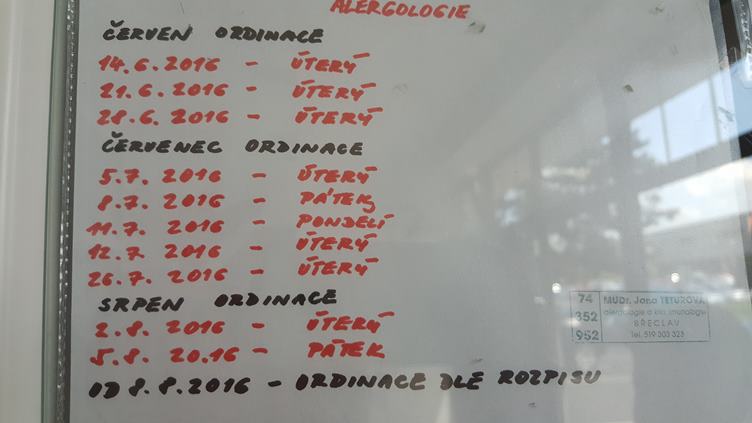 ALERGOLOGIE
ČERVEN ORDINACE
14.6.2016 - ÚTERÝ
21.6.2016 - ÚTERÝ
28.6.2016 - ÚTERÝ
ČERVENEC ORDINACE
5.7. 2016 - ÚTERÝ
8.7. 2016 - PÁTEK
11.7. 2016 - PONDELÍ
12.7 2016 - ÚTERÝ
26.7. 2016 - ÚTERÝ
SRPEN ORDINACE
2.8. 2016 - ÚTERÝ
5.8. 20.16 - PÁTEK
OD 8.8.2016 - ORDINACE DLE ROZPISU
74
352
952
MUDr. Jana TETUROVÁ
alergologie a klin. imunologie
BŘECLAV
Tel. 519 303 323